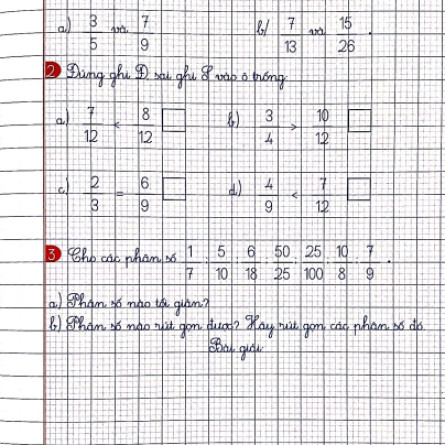 a) 3/5 và 7/9 b) 7/13 và 15/26.
2 Đúng ghi Đ, sai ghi S vào ô trống:
a) 7/12 < 8/12 □ b) 3/4 > 10/12 □
c) 2/3 = 6/9 □ d) 4/9 < 7/12 □
3 Cho các phân số 1/7; 5/10; 6/18; 50/25; 25/100; 10/8; 7/9.
a) Phân số nào tối giản?
b) Phân số nào rút gọn được? Hãy rút gọn các phân số đó.
Bài giải